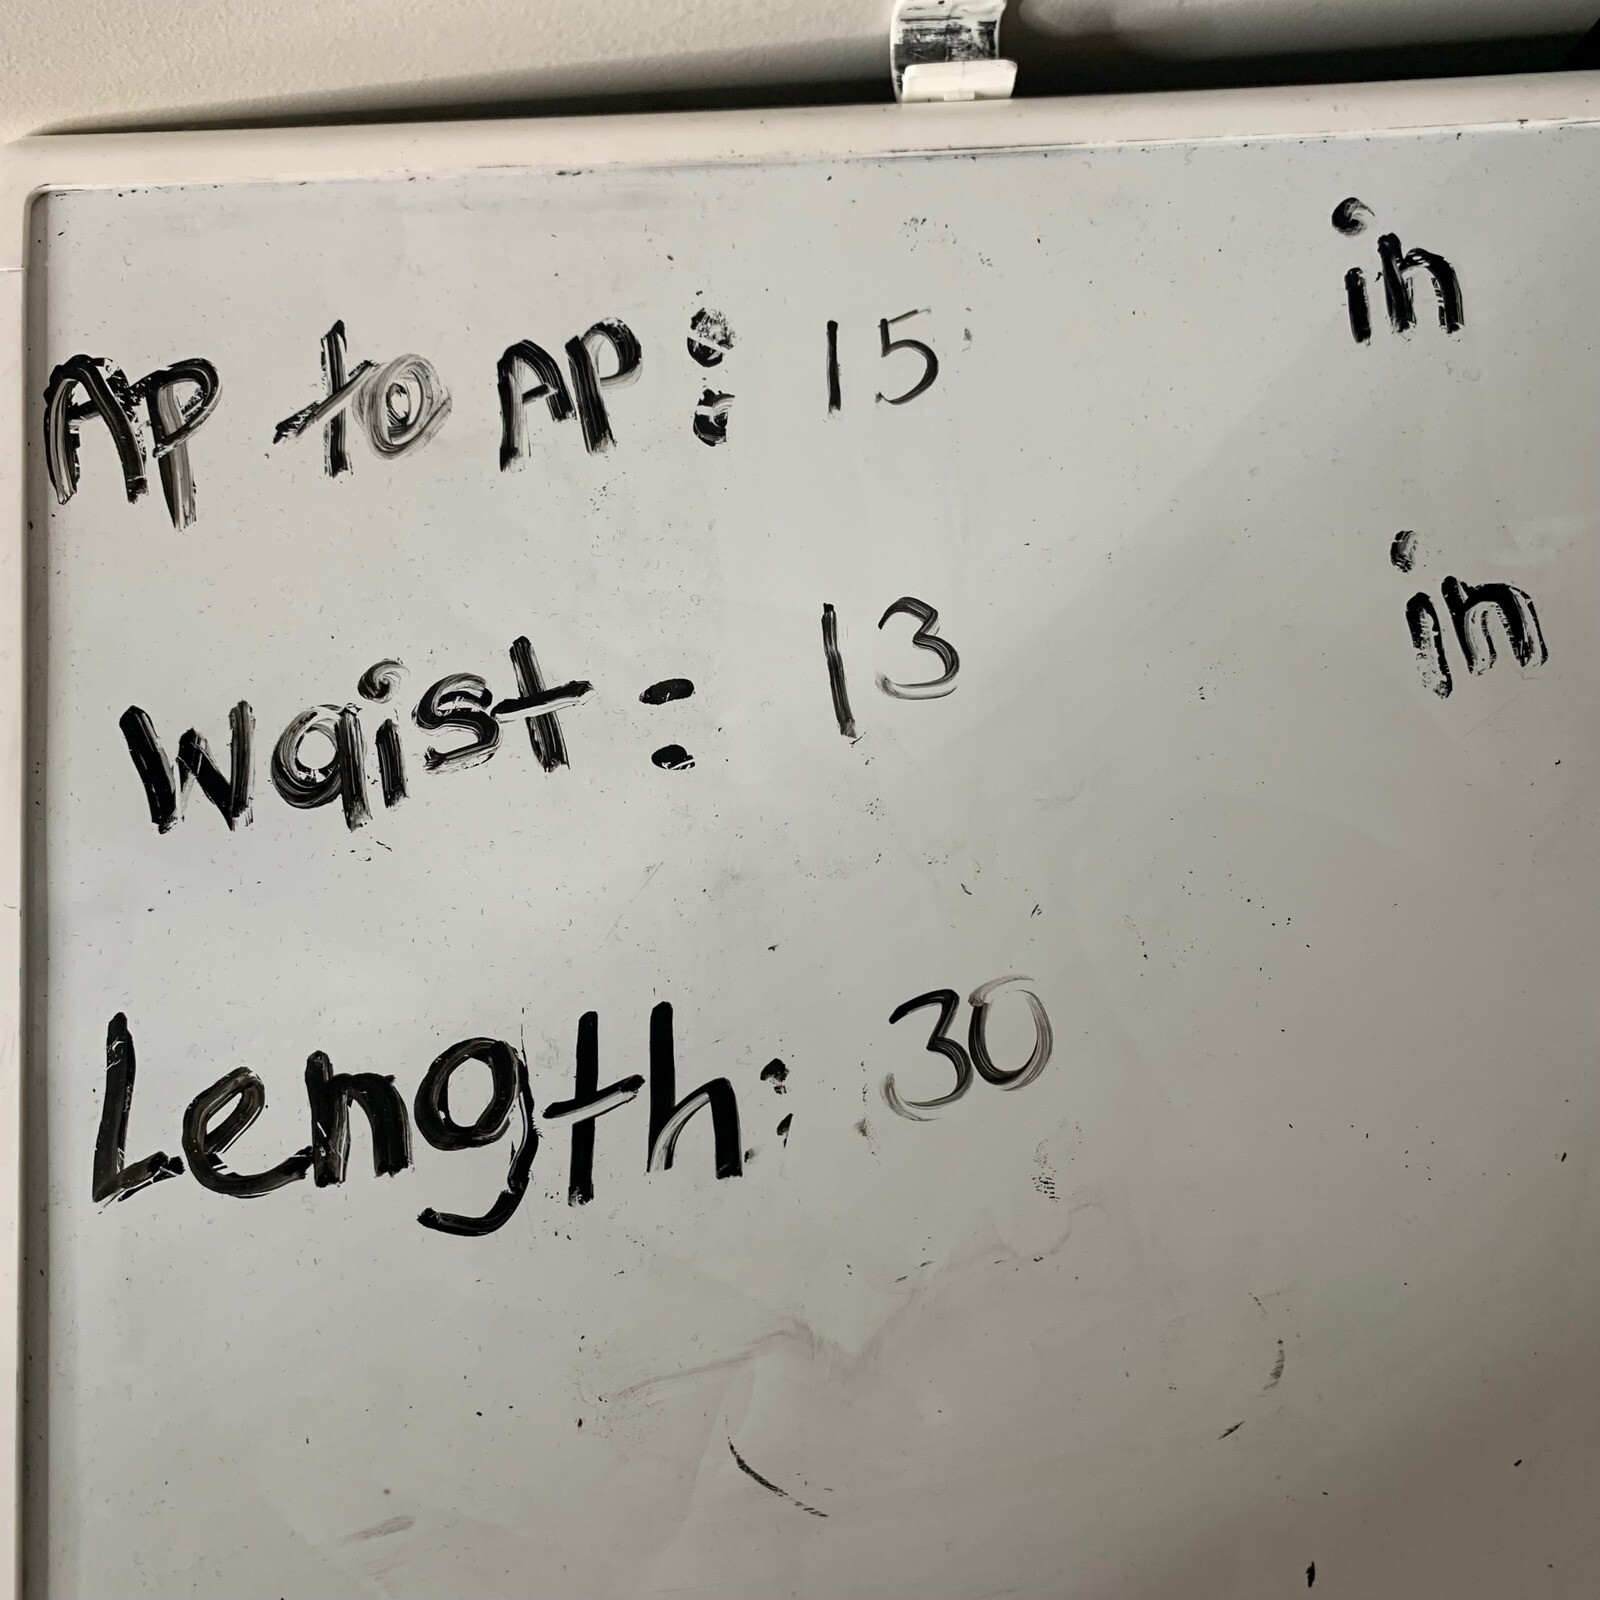 Ap to AP: 15 in
Waist: 13 in
Length: 30